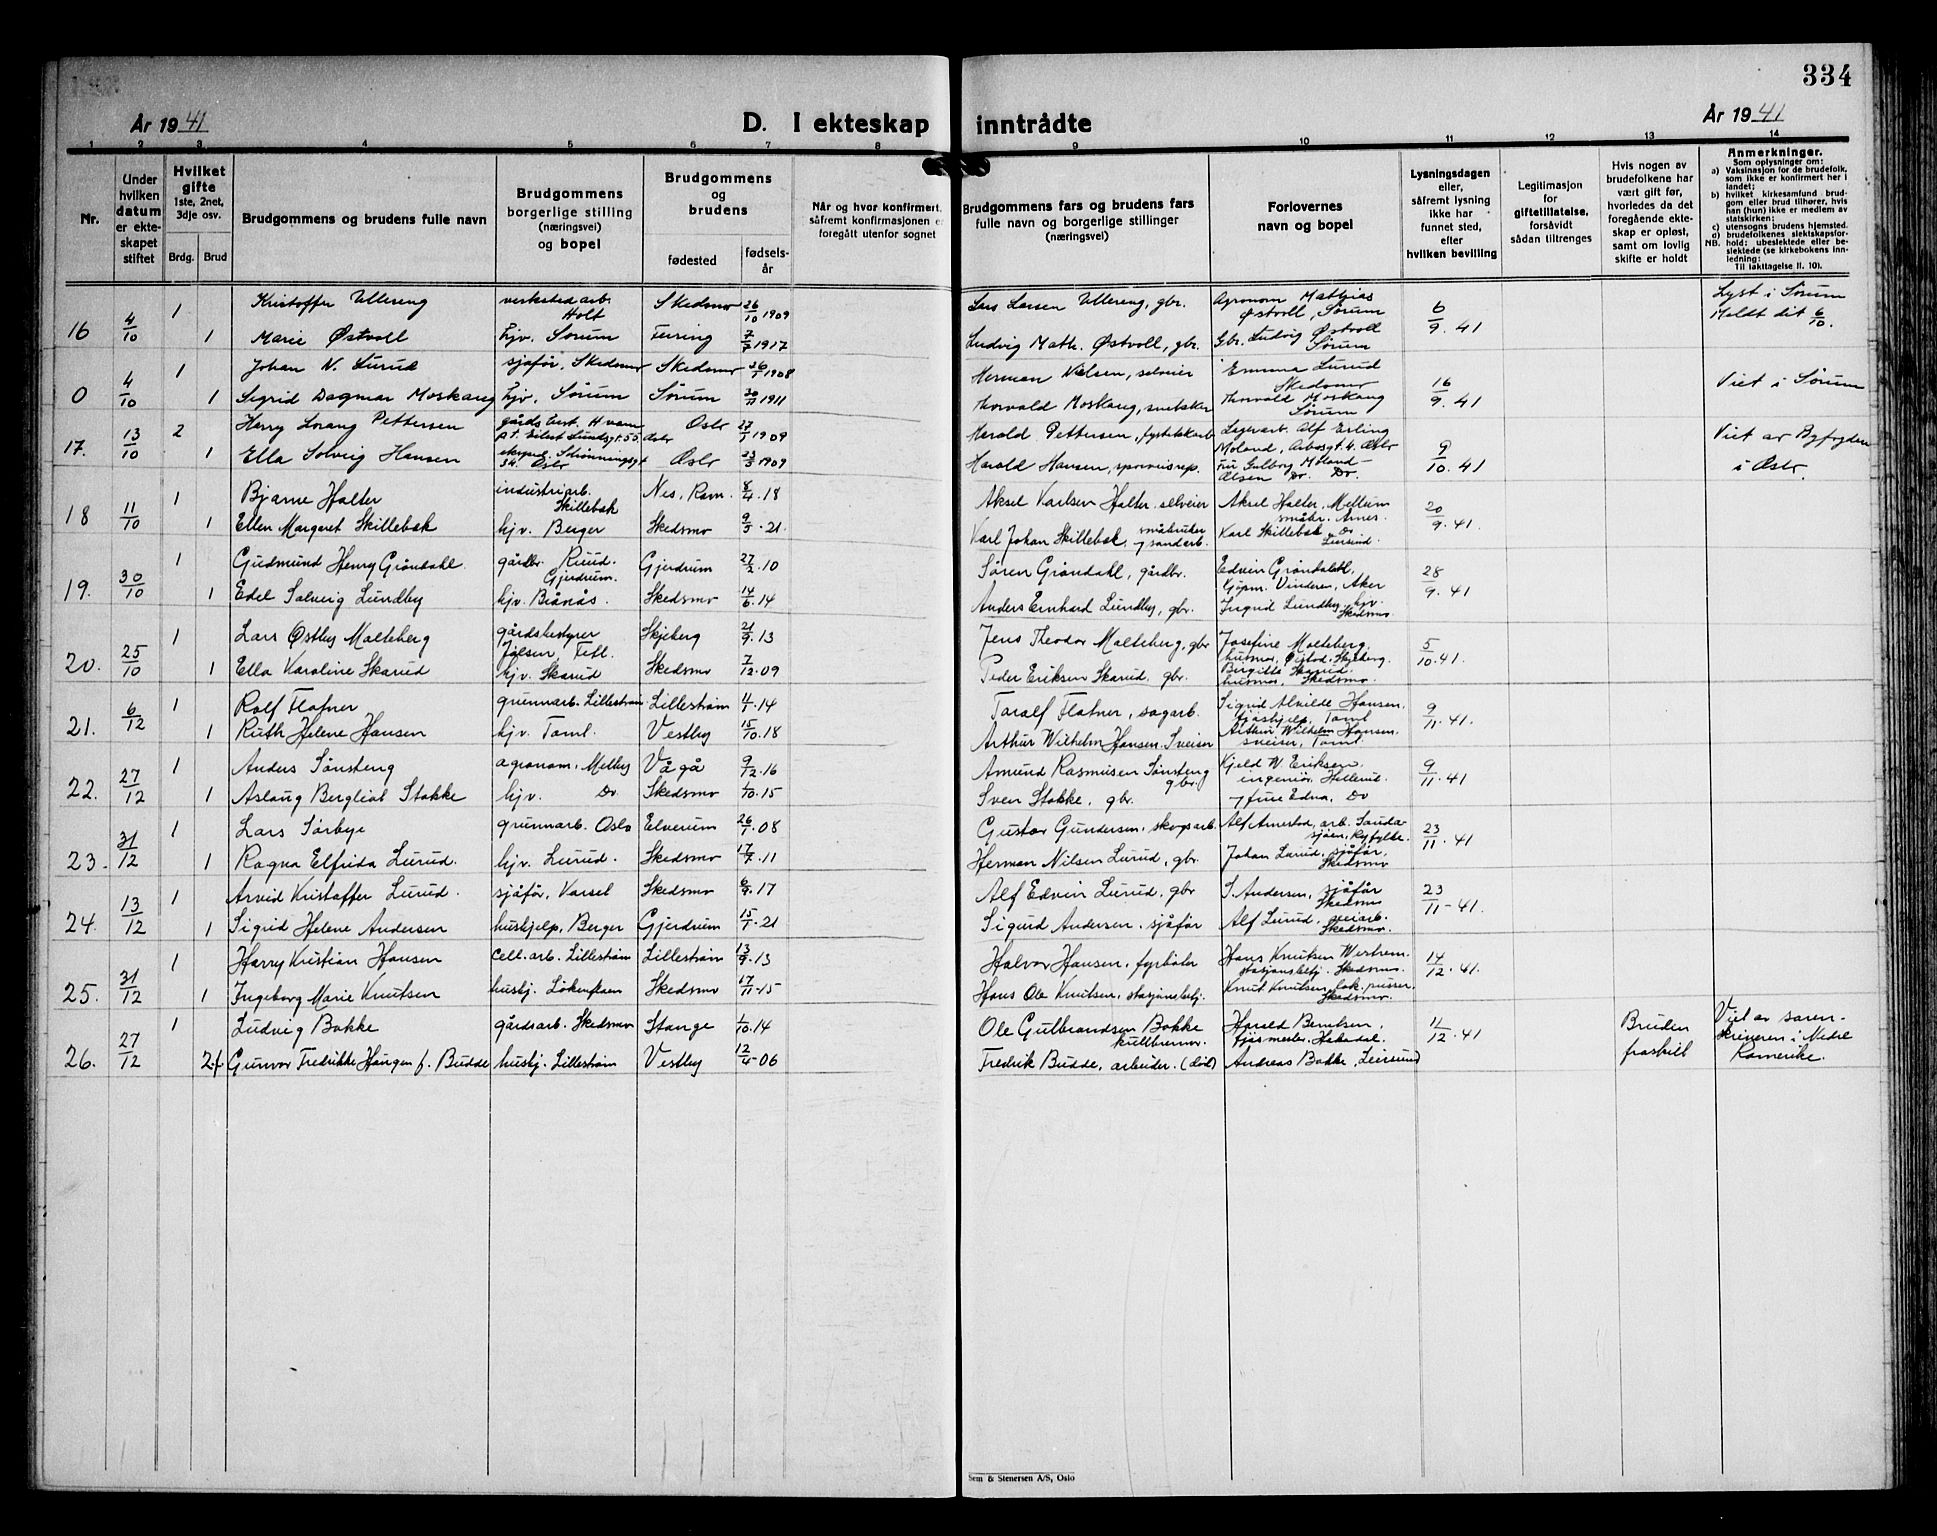 334
År 1941
D. I ekteskap inntrådte
År 1941
1 2 3 4 5 6 7 8 9 10 11 12 13 14
Nr.
Under hvilken datum er ekteskapet stiftet
Hvilket gifte 1ste, 2net, 3dje osv.
Brdg. Brud
Brudgommens og brudens fulle navn
Brudgommens borgerlige stilling (næringsvei) og bopel
Brudgommens og brudens
fødested
fødselsår
Når og hvor konfirmert, såfremt konfirmasjonen er foregått utenfor sognet
Brudgommens fars og brudens fars fulle navn og borgerlige stillinger (næringsvei)
Forlovernes navn og bopel
Lysningsdagen eller, såfremt lysning ikke har funnet sted, efter hvilken bevilling
Legitimasjon for giftetillatelse, forsåvidt sådan tiltrenges
Hvis nogen av brudefolkene har vært gift før, hvorledes da det foregående ekteskap er opløst, samt om lovlig skifte er holdt
Anmerkninger.
Som oplysninger om:
a) Vaksinasjon for de brudefolk, som ikke er konfirmert her i landet;
b) hvilket kirkesamfund brudgom eller brud tilhører, hvis han (hun) ikke er medlem av statskirken;
c) utensogns brudens hjemsted.
d) brudefolkenes slektskapsforhold: ubeslektede eller beslektede (se kirkebokens innledning:
NB. Til iakttagelse II. 10).
16 4/10 1 Kristoffer Ullereng verkstedarb. Holt Skedsmo 26/10 1909 Lars Larsen Ullereng, gbr. Agronom Mathias Østvoll, Sørum 6/9. 41 Lyst i Sørum Meldt dit 6/10.
1 Marie Østvoll hjv. Sørum Feiring 7/7 1917 Ludvig Math. Østvoll, gbr. Gbr. Ludvig Østvoll Sørum
0 4/10 1 Johan N. Lurud sjåfør, Skedsmo Skedsmo 26/1 1908 Herman Nielsen, selveier Emma Lurud Skedsmo 16/9. 41 Viet i Sørum
1 Sigrid Dagmar Moskaug hjv. Sørum Sørum 20/11 1911 Thorvald Moskaug, Thorvald Moskaug Sørum
17. 13/10 2 Harry Lorang Pettersen gårdsbest. Hvam p.t. Eilert Sundsgt. 55, Oslo Oslo 27/1 1909 Harold Pettersen, Lagerarb. Alf Erling Moland, Arbosgt. 4. Oslo 9/10. 41 Viet av Byfogden i Oslo
1 Ella Solveig Hansen 34. Oslo Oslo 23/3 1909 Harald Hansen, Fru Gulborg Moland Olsen Do. Do.
18 11/10 1 Bjarne Halter industriarb. Skillebæk Nes, Rom. 8/4. 18 Aksel Karlsen Halter. selveier Aksel Halter, Mellum småbr. Årnes. 20/9. 41.
1 Ellen Margaret Skillebæk hjv. Berger Skedsmo 9/3. 21. Karl Johan Skillebæk. småbruker sandarb. Karl Skillebæk Do Leirsund.
19. 30/10 1 Gudmund Henry Grøndahl. gårdbr. Ruud. Gjerdrum. Gjerdrum 27/2. 10 Søren Grøndahl, gårdbr. Edvin Grøndahl, Kjøpm. Vinderen, Aker 28/9. 41
1 Edel Solveig Lundby hjv. Brånås. Skedsmo 14/6. 14 Anders Ernhard Lundby, gbr. Ingrid Lundby, hjv. Skedsmo.
20. 25/10 1 Lars Østby Malteberg gårdsbestyrer Jølsen, Fetl. Skjeberg 21/9. 13 Jens Theodor Malteberg, gbr Josefine Malteberg, husmor, Skjeberg. 5/10. 41.
1 Ella Karoline Skarud hjv. Skarud Skedsmo 7/12. 09 Peder Eriksen Skarud, gbr. Birgitte Skarud. husmor, Skedsmo.
21. 6/12 1 Rolf Flatner grunnarb. Lillestrøm Lillestrøm 4/1. 14 Toralf Flatner, sagarb. Sigrid Alvilde Hansen. Fjøshjelp, Toml 9/11. 41.
1 Ruth Helene Hansen hjv. Toml. Vestby 15/10. 18 Arthur Wilhelm Hansen. Sveiser Arthur Wilhelm Hansen. sveiser, Toml.
22. 27/12 1 Anders Sønsteng agronom, Melby Vågå 9/12. 16 Amund Rasmusen Sønsteng gbr. Kjeld W. Eriksen. ingeniør, Hellerud. 9/11. 41
1 Aslaug Bergliot Stokke hjv. Do Skedsmo 1/10. 15 Sven Stokke, gbr. frue Edna, Do
23. 31/12 1 Lars Sørbye grunnarb. Oslo Elverum 26/1. 08 Gustav Gundersen. skogsarb. Alf Amestad, arb. Saudasjøen, Ryfylke. 23/11. 41
1 Ragna Elfrida Lurud. hjv. Lurud. Skedsmo 17/7. 11 Herman Nilsen Lurud, gbr. Johan Lurud, sjåfør, Skedsmo
24. 13/12 1 Arvid Kristoffer Lurud. sjåfør, Vorsel Skedsmo 6/9. 17 Alf Edvin Lurud, gbr S. Andersen, sjåfør Skedsmo 23/11 - 41.
1 Sigrid Helene Andersen hushjelp, Berger Gjerdrum 15/1. 21 Sigurd Andersen. sjåfør Alf Lurud, veiarb. Skedsmo.
25. 31/12 1 Harry Kristian Hansen cell. arb. Lillestrøm Lillestrøm 13/9. 13 Halvor Hansen, fyrbøter Hans Knutsen Westrem. stasjonsbetj. Skedsmo. 14/12. 41.
1 Ingeborg Marie Knutsen hushj. Løkenåsen Skedsmo 17/11 - 15 Hans Ole Knutsen, stasjonsbetj. Knut Knutsen, lok. pusser, Skedsmo.
26. 27/12 1 Ludvig Bakke gårdsarb. Skedsmo Stange 1/10. 14 Ole Gulbrandsen Bakke kullbrenner. Harald Berntsen, fjøsmester, 11/12. 41 Bruden fraskilt Viet av sorenskriveren i Nedre Romerike.
2. Gunvor Fredrikke Haugen f. Budde hushj. Lillestrøm Vestby 12/4 - 06 Fredrik Budde, arbeider. (død) Andreas Bakke, Leirsund
Sem & Stenersen A/S, Oslo